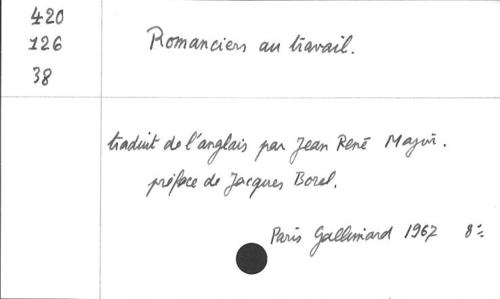 420
126
38
Romanciers au travail.
traduit de l'anglais par Jean René Major.
préface de Jacques Borel.
Paris Gallimard 1967 8º